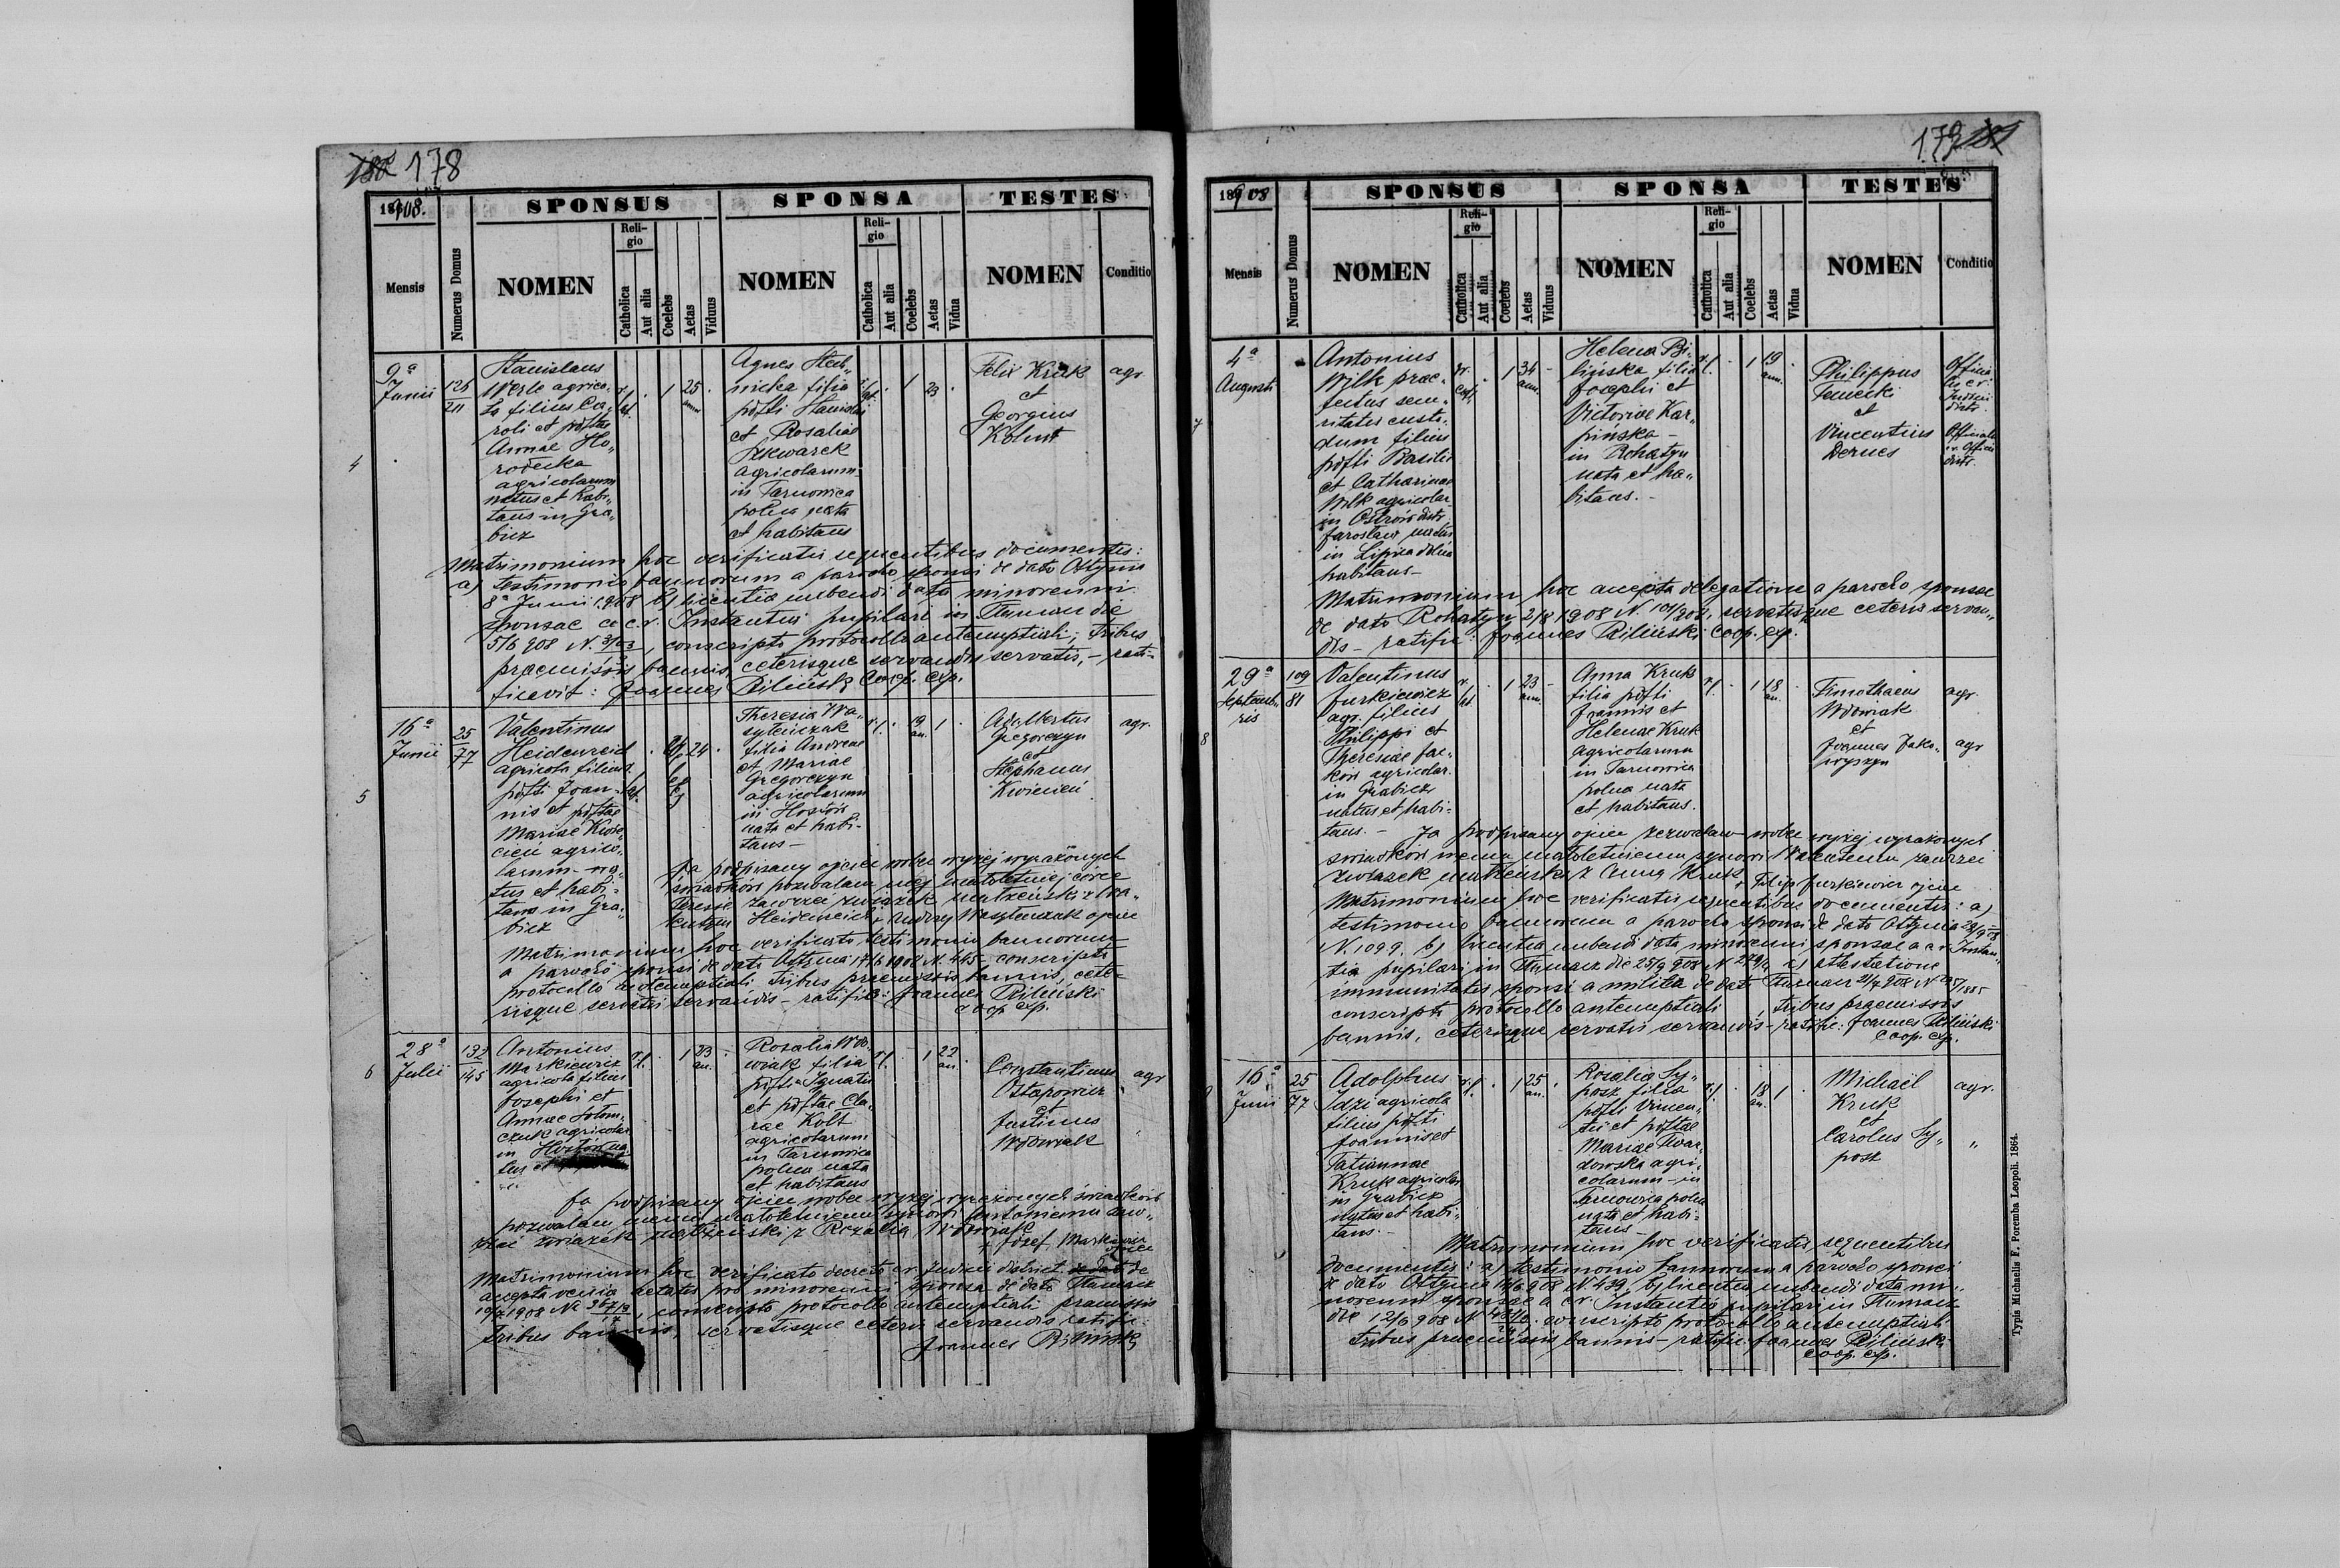 182 178
18908.
SPONSUS
SPONSA
TESTES
Mensis
Numerus Domus
NOMEN
Religio
Catholica
Aut alia
Coelebs
Aetas
Viduus
NOMEN
Religio
Catholica
Aut alia
Coelebs
Aetas
Vidua
NOMEN
Conditio
4
9a
Junii
126
211
Stanislaus
Werle agrico„
la filius Ca„
roli et p̄ftae
Annae Ho„
rodecka
agricolarum
natus et habi„
tans in Gra„
bicz
1 25
ann
Agnes Stech„
nicka filia
p̄fti Stanislai
et Rosaliae
Sekwarek
agricolarum
in Tarnowica
polna nata
et habitans
1 23
Felix Kruk
et
Georgius
agr.
Matrimonium hoc verificatis sequentibus documentis:
a) testimonio bannorum a parocho sponsi de dato Ottynia
8a Junii 1908 b) licentia nubendi data minorenni
sponsae a c.r. Instantia pupilari in Tłumacz die
5/6 908 N. , conscripto protocollo antenuptiali, tribus
praemissis bannis, ceterisque servandis servatis, – rati-
ficavit: Joannes Biliński Coop. exp.
5
16a
Junii
25
77
Valentinus
Heidenreich
agricola filius
p̄fti Joan-
nis et p̄ftae
Mariae Kwie„
cień agrico„
larum – na„
tus et habi-
tans in Gra„
bicz
24
Theresia Wa„
sylenczak
filia Andreae
et Mariae
Gregorczyn
agricolarum
in Hostów
nata et habi-
tans –
19
an.
1
Adalbertus
Gregorczyn
et
Stephanus
Kwiecień
agr.
Ja podpisany ojciec wobec wyżej wyrażonych
świadków pozwalam mej małoletniej córce
Teresie zawrzeć związek małżeński z Wa„
lentym Heidenreich, Andrzej Wasylenczak ojciec
Matrimonium hoc verificato testimonio bannorum
a parocho sponsi de dato Ottynia 14/6 1908 N. 445 – conscripto
protocollo antenuptiali tribus praemissis bannis, cete-
risque servatis servandis – ratific: Joannes Biliński
coop exp.
6
28a
Julii
132
145
Antonius
Markiewicz
agricola filius
Josephi et
Annae Sołom„
czuk agricolar
in Hostów na„
tus et
1 23
an.
Rosalia Wdo„
wiak filia
p̄fti Ignatii
et p̄ftae Cla„
rae Kolt
agricolarum
in Tarnowica
polna nata
et habitans
1 22
an.
Constantinus
Ostapowicz
et
Justinus
Wdowiak
agr
„
Ja podpisany ojciec wobec wyżej wyrażonych świadków
pozwalam memu małoletniemu synowi Antoniemu zaw„
rzeć związek małżeński z Rozalią Wdowiak
+ Józef Markiewicz
ojciec
Matrimonium hoc verificato decreto c.r. Judicii district de
accepta venia aetatis pro minorenni sponsa de dato Tłumacz
10/7 1908 N. , conscripto protocollo antenuptiali praemissis
tribus bannis, servatisque ceteris servandis ratific:
Joannes Biliński
179 181
18908
SPONSUS
SPONSA
TESTES
Mensis
Numerus Domus
NOMEN
Religio
Catholica
Aut alia
Coelebs
Aetas
Viduus
NOMEN
Religio
Catholica
Aut alia
Coelebs
Aetas
Vidua
NOMEN
Conditio
7
4a
Augusti
Antonius
Wilk prae„
fectus secu„
ritatis custo„
dum filius
p̄fti Basilii
et Catharinae
Wilk agricolar
in Ostrów distr.
Jarosław natus
in Lipica dolna
habitans –
1 34
ann.
Helena Bi„
lińska filia
Josephi et
Victoriae Kar„
pińska –
in Rohatyn
nata et ha„
bitans. –
1 19
ann.
Philippus
et
Vincentius
Judicii
distr.
distr.
Matrimonium hoc accepta delegatione a parocho sponsae
de dato Rohatyn 2/8 1908 N. , servatisque ceteris servan„
dis – ratific: Joannes Biliński coop. exp.
8
29a
Septemb„
ris
109
81
Valentinus
Jurkiewicz
agr. filius
Philippi et
Theresiae Jac„
ków agricolar.
in Grabicz
natus et habi-
tans. –
1 23
ann.
Anna Kruk
filia p̄fti
Joannis et
Helenae Kruk
agricolarum
in Tarnowica
polna nata
et habitans.
1 18
an.
Timothaeus
Wdowiak
et
Joannes
agr.
agr
Ja podpisany ojciec zezwalam wobec wyżej wyrażonych
świadków memu małoletniemu synowi Walentemu zawrzeć
związek małżeński z Anną Kruk + Filip Jurkiewicz ojciec
Matrimonium hoc verificatis sequentibus documentis: a)
testimonio bannorum a parocho sponsi de dato Ottynia 28/9 908
N. 1099, b) licentia nubendi data minorenni sponsae a c.r. Instan„
tia pupilari in Tłumacz die 25/9 908 N. , c) attestatione
immunitatis sponsi a militia de dato Tłumacz 21/9 908 N.
conscripto protocollo antenuptiali, tribus praemissis
bannis, ceterisque servatis servandis – ratific: Joannes Biliński
Coop. exp.
16a
Junii
25
77
Adolphus
Idzi agricola
filius p̄fti
Joannis et
Tatiannae
Kruk agricolar
in Grabicz
natus et habi„
tans. –
1 25
an.
Rosalia Sy„
posz filia
p̄fti Vincen„
tii et p̄ftae
Mariae Twar„
dowska agri„
colarum – in
Tarnowica polna
nata et habi-
tans
18
an.
1
Michaël
Kruk
et
Carolus Sy„
posz
agr.
„
Matrimonium hoc verificatis sequentibus
documentis: a) testimonio bannorum a parocho sponsi
de dato Ottynia 14/6 908 N. 439, b) licentia nubendi data mi„
norenni sponsae a c.r. Instantia pupilari in Tłumacz
die 12/6 908 N. conscripto protocollo antenuptiali
tribus praemissis bannis – ratific. Joannes Biliński
Coop. exp.
Typis Michaelis F. Poremba Leopoli. 1864.